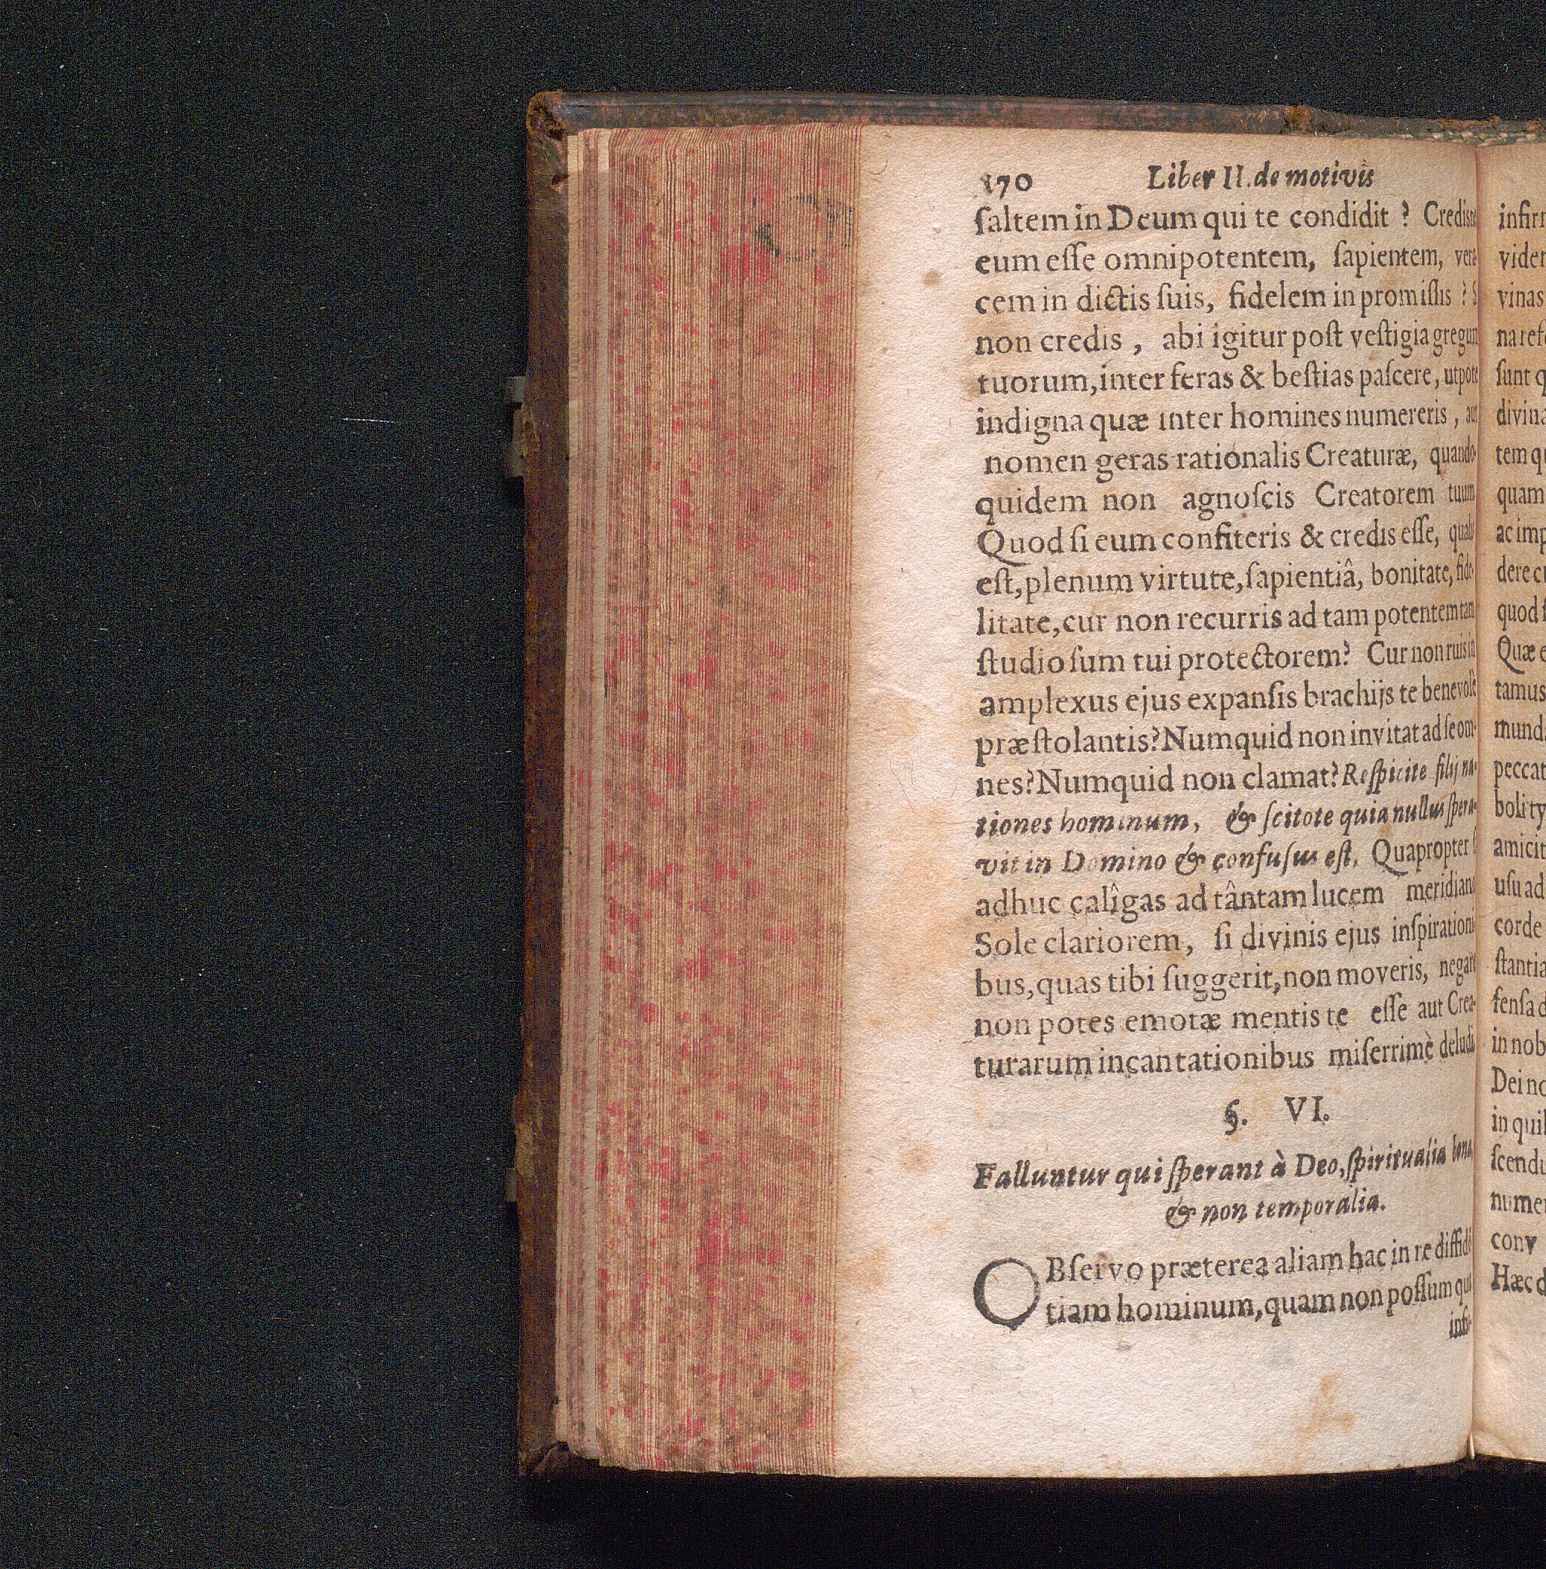 170 Liber II. de motivis
ſaltem in Deum qui te condidit ? Credisne
eum eſſe omnipotentem, ſapientem, vera-
cem in dictis ſuis, fidelem in promiſſis ? S
non credis , abi igitur poſt veſtigia gregum
tuorum, inter feras & beſtias paſcere, utpote
indigna quæ inter homines numereris , aut
nomen geras rationalis Creaturæ, quando-
quidem non agnoſcis Creatorem tuum
Quod ſi eum confiteris & credis eſſe, qualis
eſt, plenum virtute, ſapientiâ, bonitate, fide-
litate, cur non recurris ad tam potentem tam
ſtudioſum tui protectorem? Cur non ruis in
amplexus ejus expanſis brachijs te benevolè
præſtolantis? Numquid non invitat ad ſe om-
nes? Numquid non clamat? Reſpicite filij na-
tiones hominum, & ſcitote quia nullus ſpera-
vit in Domino & confuſus eſt. Quapropter
adhuc calîgas ad tântam lucem meridiano
Sole clariorem, ſi divinis ejus inſpirationi-
bus, quas tibi ſuggerit, non moveris, negare
non potes emotæ mentis te eſſe aut Crea-
turarum incantationibus miſerrimè deludi
§. VI.
Falluntur qui ſperant à Deo, ſpiritualia bona,
& non temporalia.
OBſervo præterea aliam hac in re diffidẽ
tiam hominum, quam non poſſum qui
infi-
vinas
ſunt q
divina
tem qu
quam
ac imp
dere cu
quod ſ
Quæ e
tamus
peccat
boli ty
amicit
uſu ad
corde
ſtantia
fenſa d
in nob
Dei no
in quib
ſcendu
numer
conv
Hæc d